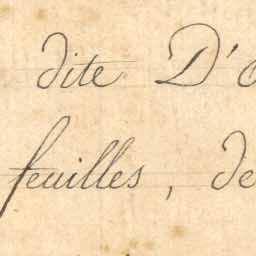 dite D'
feuilles, de